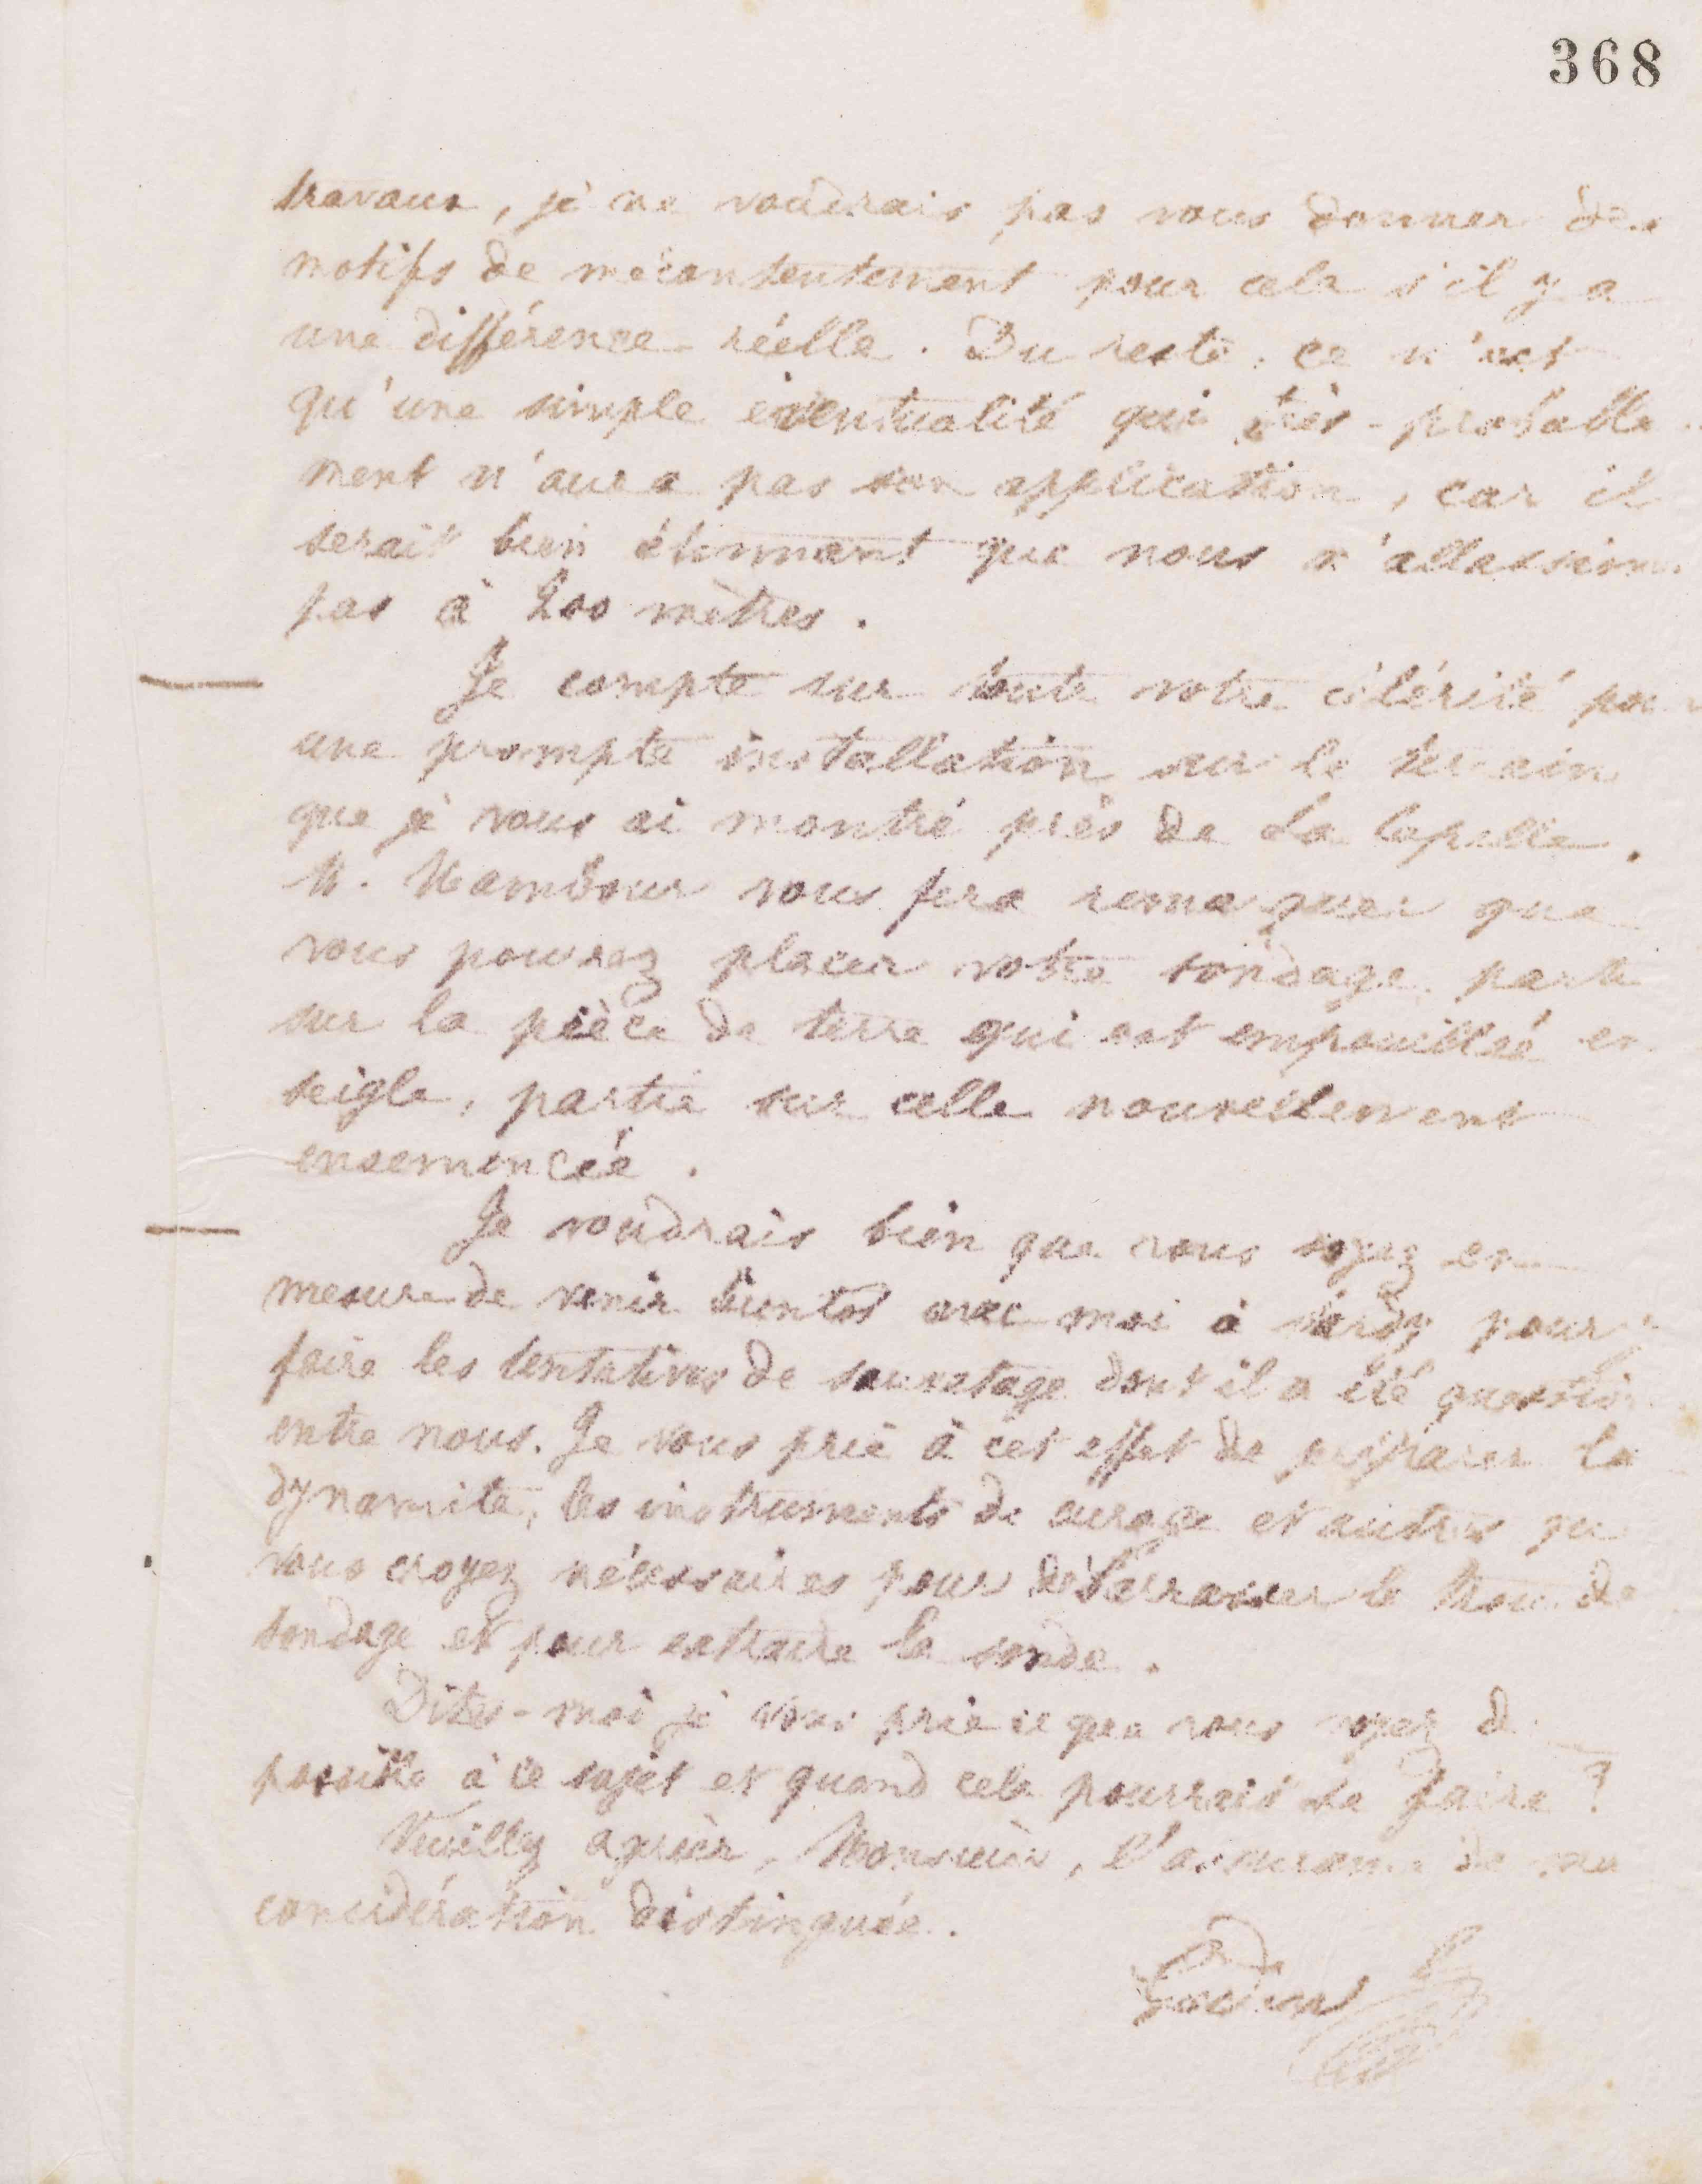 368
travaux, je ne voudrais pas vous donner des
motifs de mécontentement pour cela s'il y a
une différence réelle. Du reste, ce n'est
qu'une simple éventualité qui très-probable-
ment n'aura pas son application, car il
serait bien étonnant que nous n'allassions
pas à 200 mètres.
Je compte sur toute votre célérité pour
une prompte installation sur le terrain
que je vous ai montré près de La Capelle.
M. vous fera remarquer que
vous pouvez placer votre sondage partie
sur la pièce de terre qui est empouillée en
seigle, partie sur celle nouvellement
ensemencée.
Je voudrais bien que vous soyez en
mesure de venir bientôt avec moi à pour y
faire les tentatives de sauvetage dont il a été question
entre nous. Je vous prie à cet effet de préparer la
dynamite, les instruments de curage et autres que
vous croyez nécessaires pour débarrasser le trou de
sondage et pour extraire la sonde.
Dites-moi je vous prie ce que vous voyez de
possible à ce sujet et quand cela pourrait se faire ?
Veuillez agréer, Monsieur, l'assurance de ma
considération distinguée.
Godin